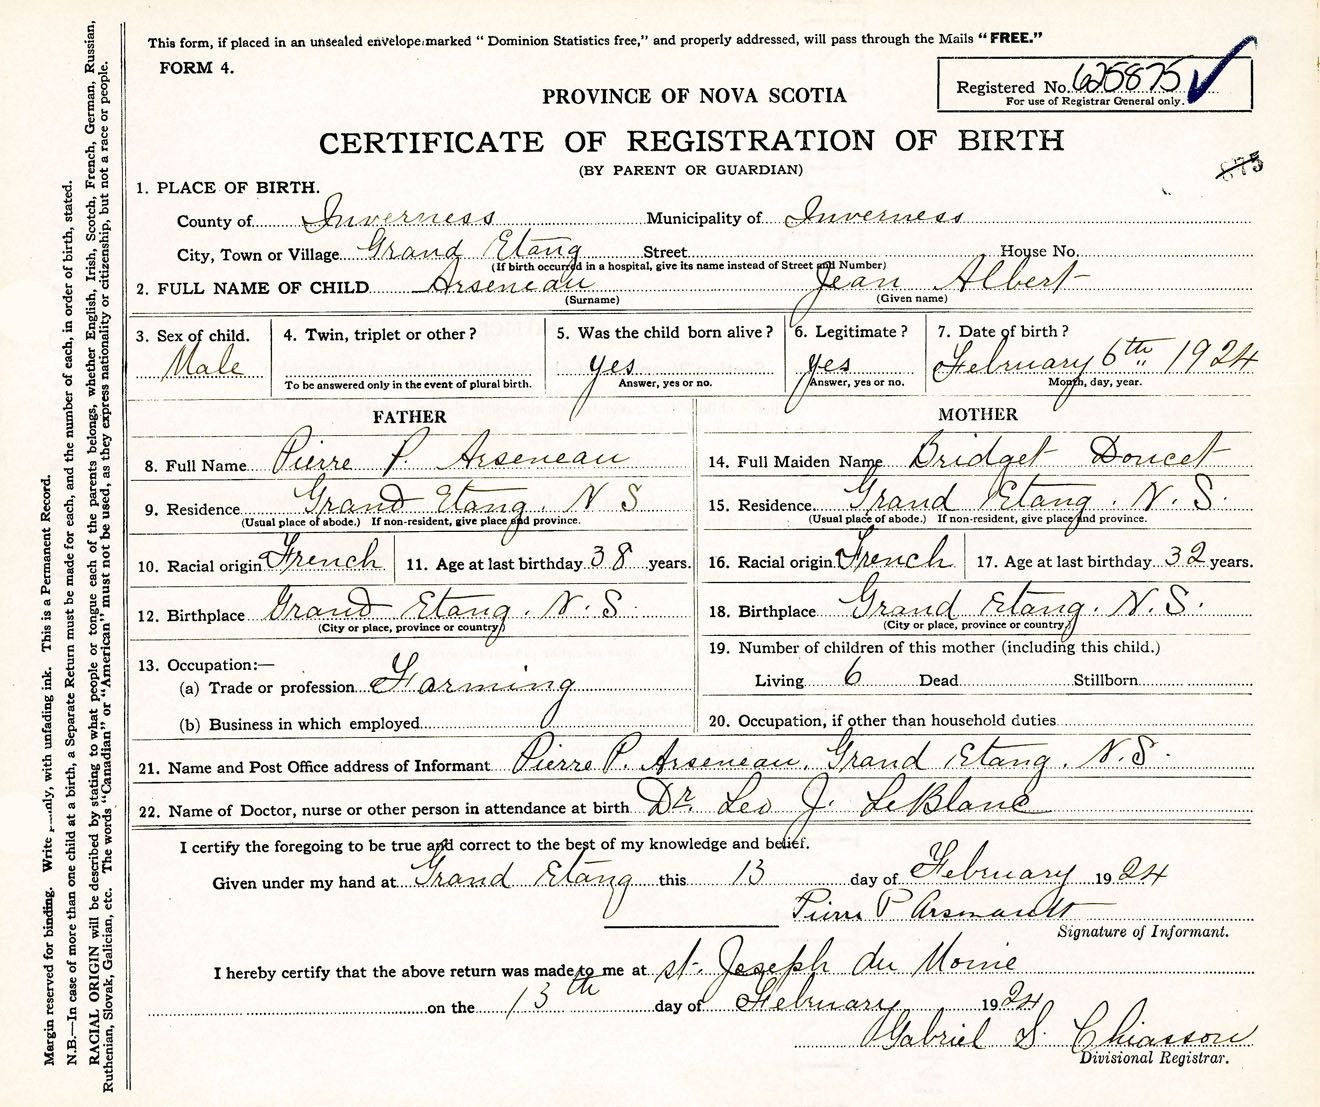 This form, if placed in an unsealed envelope marked "Dominion Statistics free," and properly addressed, will pass through the Mails "FREE."
FORM 4.
Registered No. 625875
For use of Registrar General only.
PROVINCE OF NOVA SCOTIA
CERTIFICATE OF REGISTRATION OF BIRTH
(BY PARENT OR GUARDIAN)
875
1. PLACE OF BIRTH.
County of Inverness Municipality of Inverness
City, Town or Village Grand Etang Street House No.
(If birth occurred in a hospital, give its name instead of Street and Number)
2. FULL NAME OF CHILD Arseneau Jean Albert
(Surname) (Given name)
3. Sex of child. 4. Twin, triplet or other? 5. Was the child born alive? 6. Legitimate? 7. Date of birth?
Male yes yes February 6th 1924
To be answered only in the event of plural birth. Answer, yes or no. Answer, yes or no. Month, day, year.
FATHER
8. Full Name Pierre P. Arseneau
9. Residence Grand Etang N S
(Usual place of abode.) If non-resident, give place and province.
10. Racial origin French 11. Age at last birthday 38 years.
12. Birthplace Grand Etang. N. S.
(City or place, province or country)
13. Occupation:—
(a) Trade or profession Farming
(b) Business in which employed
MOTHER
14. Full Maiden Name Bridget Doucet
15. Residence Grand Etang. N. S.
(Usual place of abode.) If non-resident, give place and province.
16. Racial origin French 17. Age at last birthday 32 years.
18. Birthplace Grand Etang. N. S.
(City or place, province or country)
19. Number of children of this mother (including this child.)
Living 6 Dead Stillborn
20. Occupation, if other than household duties
21. Name and Post Office address of Informant Pierre P. Arseneau, Grand Etang. N. S.
22. Name of Doctor, nurse or other person in attendance at birth Dr. Leo J. LeBlanc
I certify the foregoing to be true and correct to the best of my knowledge and belief.
Given under my hand at Grand Etang this 13 day of February 1924
P Signature of Informant.
I hereby certify that the above return was made to me at st. Joseph du Moine
on the 13th day of February 1924
Gabriel S. Chiasson
Divisional Registrar.
Margin reserved for binding. Write only, with unfading ink. This is a Permanent Record.
N.B.—In case of more than one child at a birth, a Separate Return must be made for each, and the number of each, in order of birth, stated.
RACIAL ORIGIN will be described by stating to what people or tongue each of the parents belongs, whether English, Irish, Scotch, French, German, Russian,
Ruthenian, Slovak, Galician, etc. The words "Canadian" or "American" must not be used, as they express nationality or citizenship, but not a race or people.